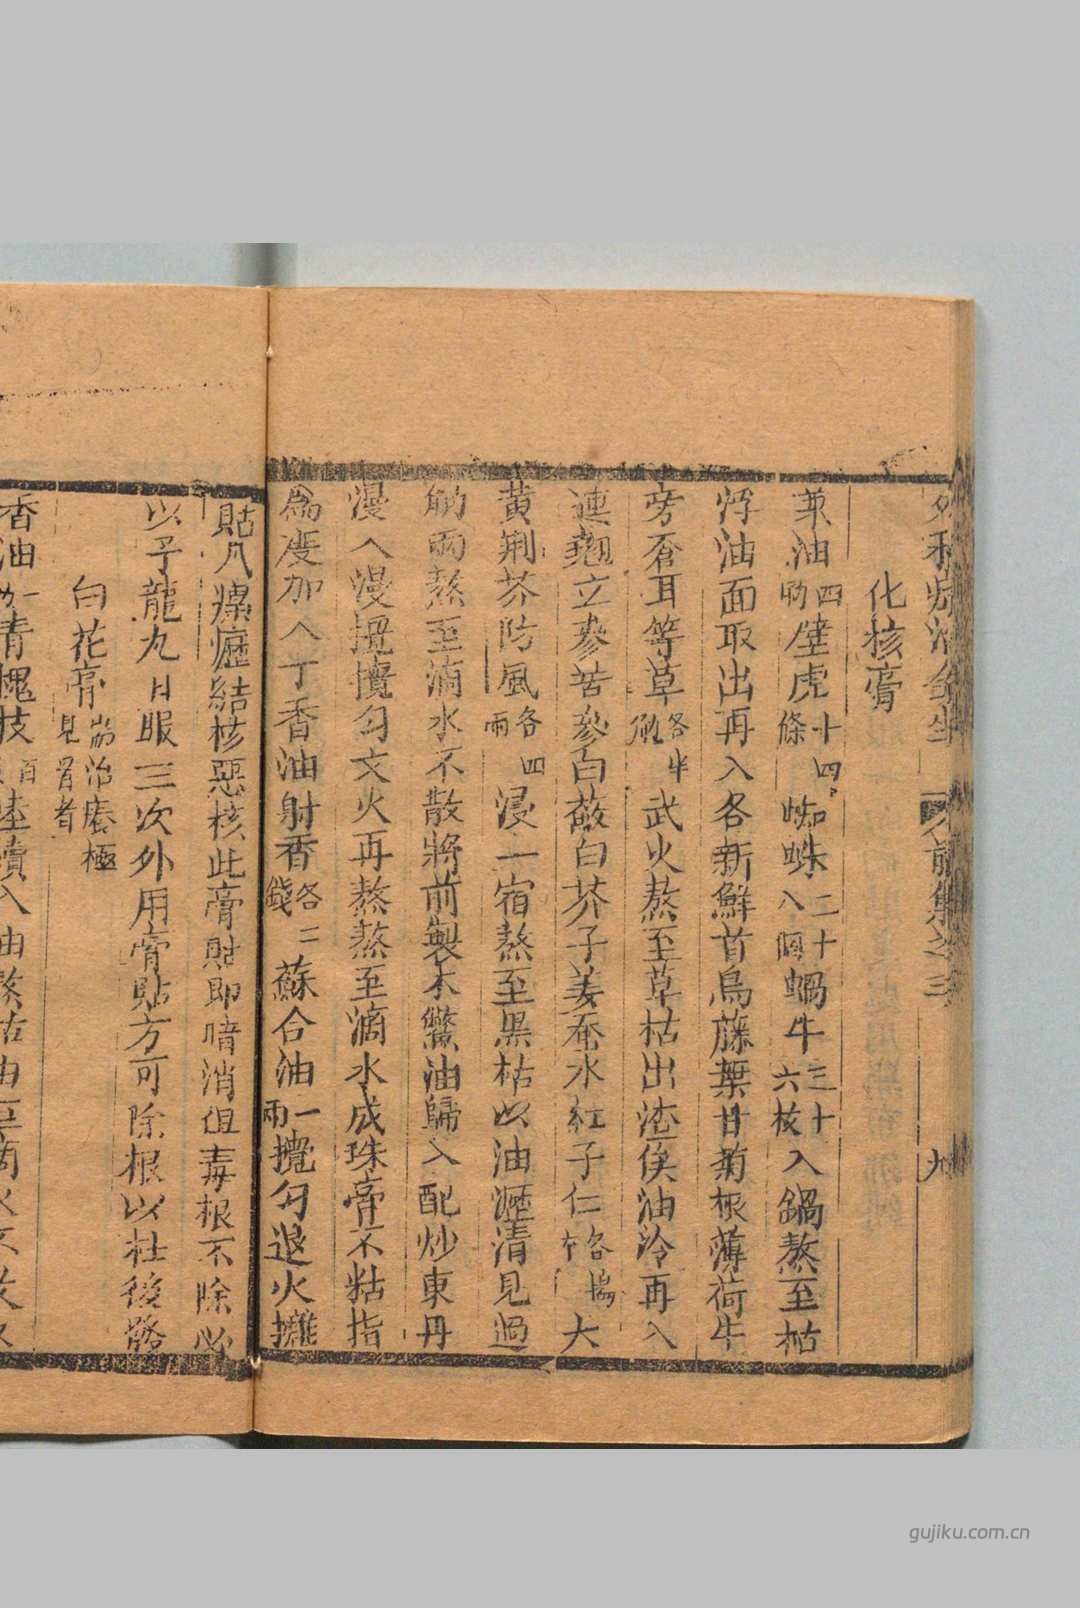 外科症治全生 前集卷三 九
化核膏
菉油四觔壁虎十四條蜘蛛二十八個蝸牛三十六枚入鍋熬至枯
浮油面取出再入各新鮮首烏藤葉甘菊根薄荷牛
旁蒼耳等草各半觔武火熬至草枯出渣俟油冷再入
連翹立參苦參白蘞白芥子姜蚕水紅子仁大
黃荊芥防風各四兩浸一宿熬至黑枯以油瀝清見過
觔兩熬至滴水不散將前製木鱉油歸入配炒東丹
慢入慢攪勻文火再熬熬至滴水成珠膏不粘指
為度加入丁香油射香各二錢蘇合油一兩攪勻退火攤
貼凡瘰癧結核惡核此膏貼即暗消但毒根不除必
以子龍丸日服三次外用膏貼方可除根以杜後
白花膏耑治癢極見骨者
香油一觔青槐枝百
gujiku.com.cn